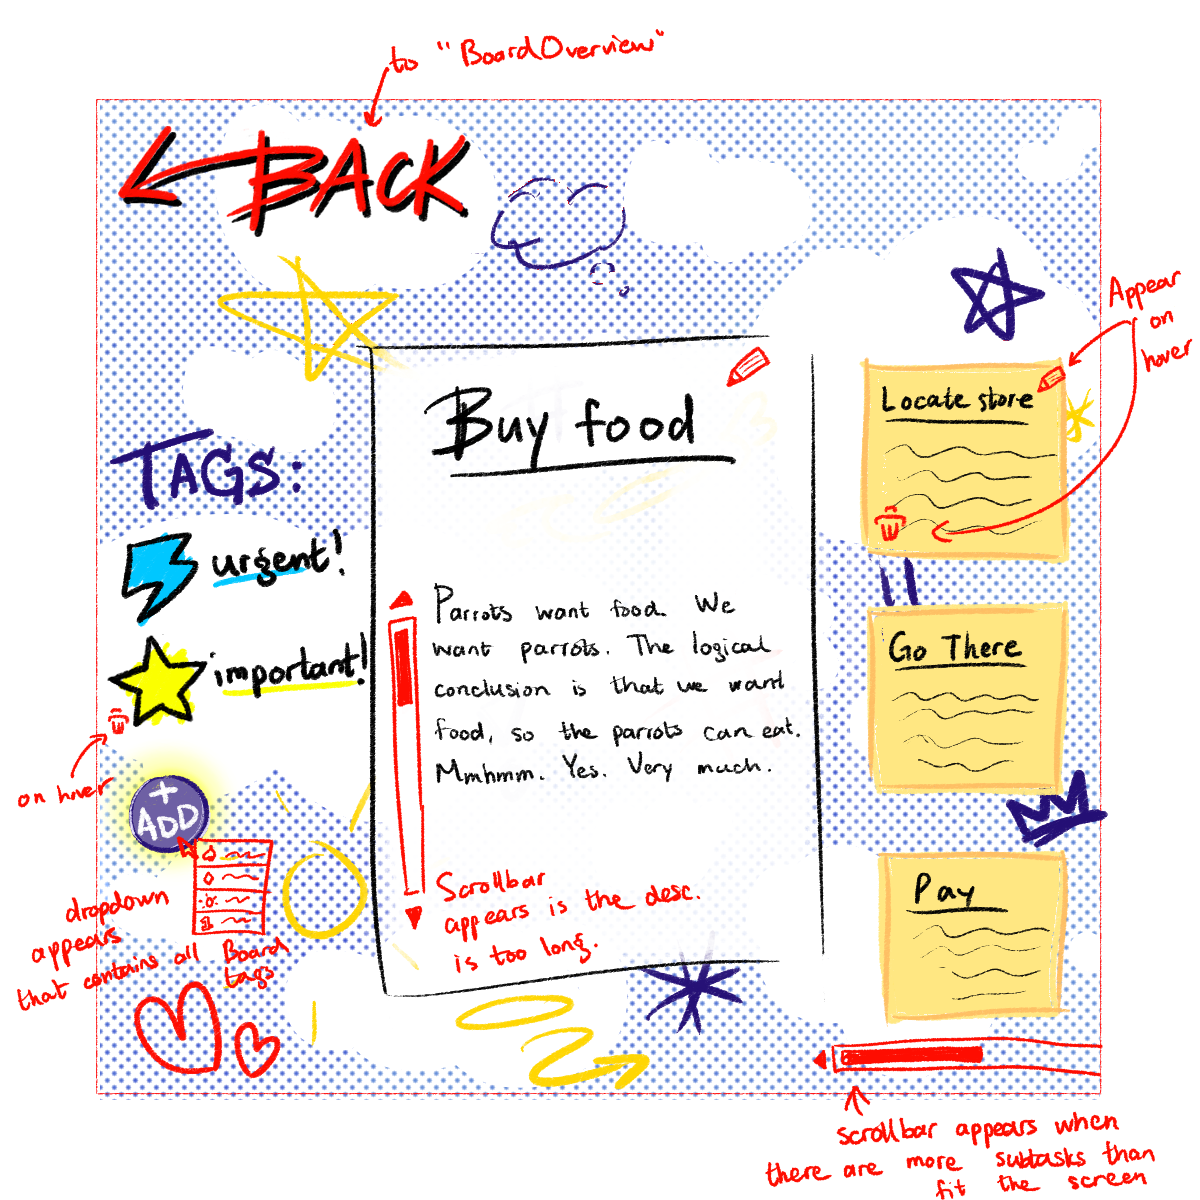 to "BoardOverview"
BACK
Appear
on
hover
Buy food
Locate store
TAGS:
urgent!
important!
on hover
+
ADD
dropdown
appears
that contains all Board
tags
Parrots want food. We
want parrots. The logical
conclusion is that we want
food, so the parrots can eat.
Mmhmm. Yes. Very much.
Scrollbar
appears is the desc.
is too long.
Go There
Pay
scrollbar appears when
there are more subtasks than
fit the screen